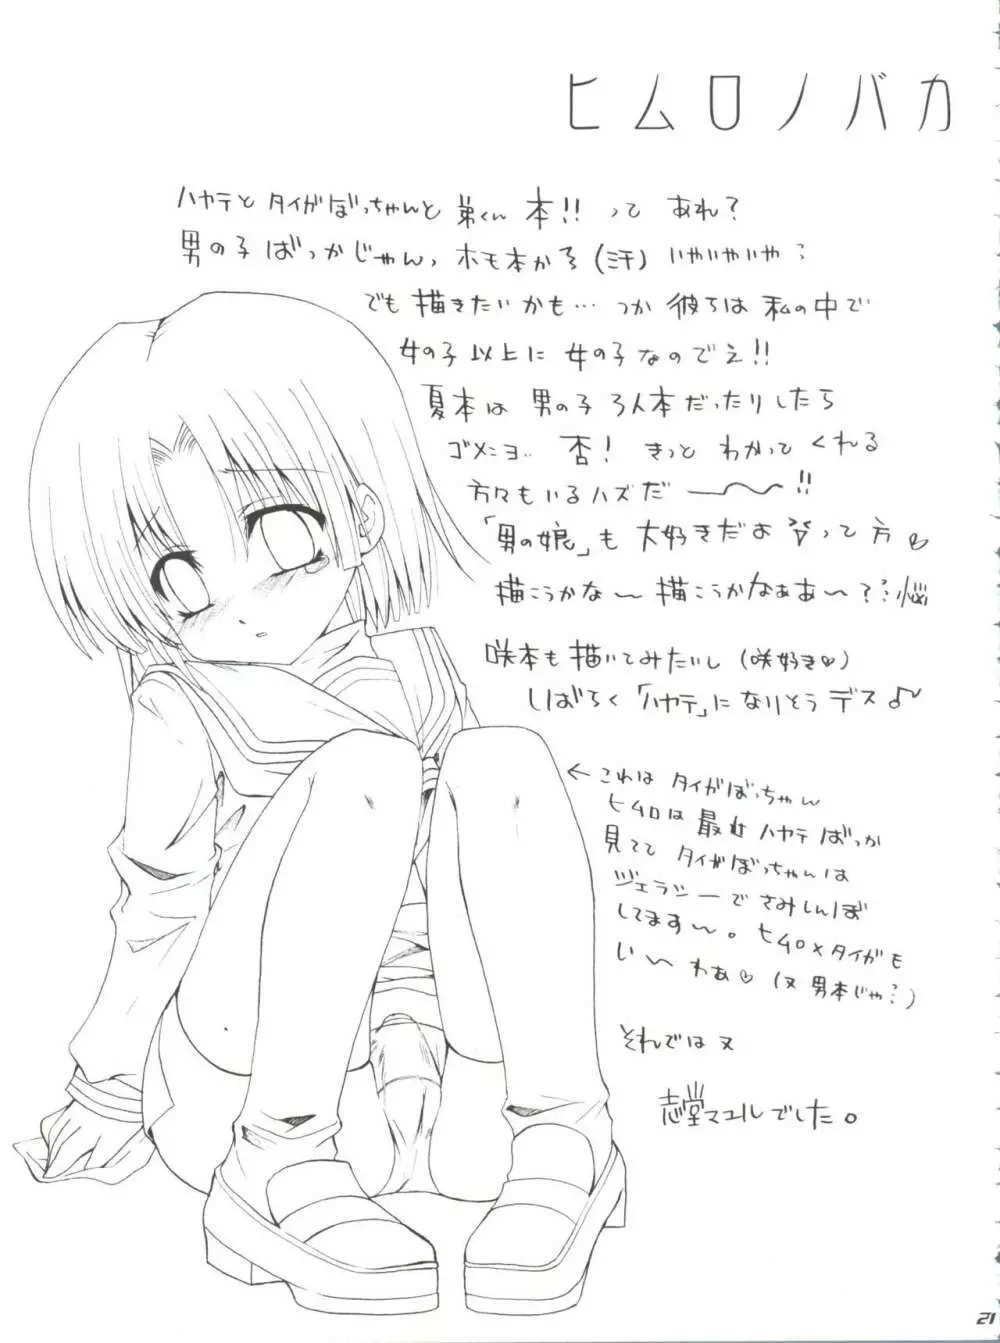 ヒムロノバカ
ハヤテと タイガぼっちゃんと 弟くん 本!! って あれ?
男の子 ばっかじゃんっ ホモ本かよ (汗) いやいやいや…
でも 描きたい かも… つか 彼らは 私の中で
女の子以上に 女の子なのでえ!!
夏本は 男の子 3人本だったりしたら
ゴメニョ… 否! きっと わかって くれる
方々もいるハズだ 〜〜!!
「男の娘」も 大好きだよ って 方♡
描こうかな〜 描こうかなぁあ〜?…悩
咲本も 描いてみたいし (咲好き♡)
しばらく「ハヤテ」に なりそう デス♪
← これは タイガぼっちゃん
ヒムロは 最近 ハヤテ ばっか
見てて タイガぼっちゃんは
ジェラシーで さみしんぼ
してます〜。 ヒムロ×タイガも
い〜 わぁ♡ (又 男本じゃ…)
それでは 又
志堂マユルでした。
21